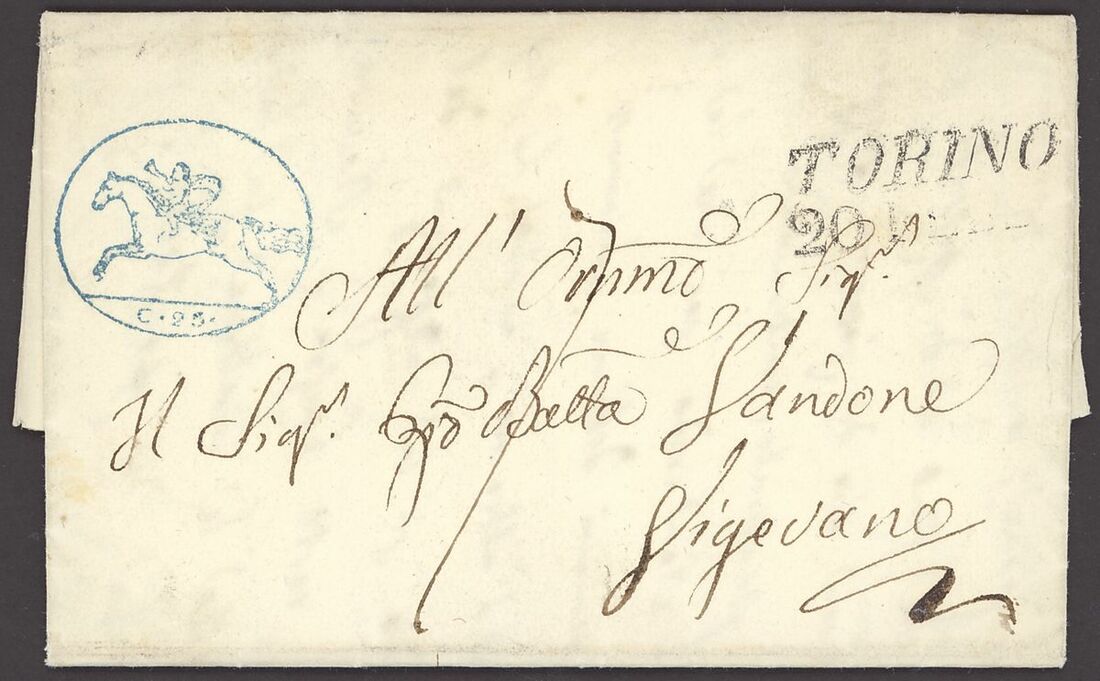 C. 25.
TORINO
20
All' Ornmo Sigr
Il Sigr. Gio Batta Vandone
Vigevano